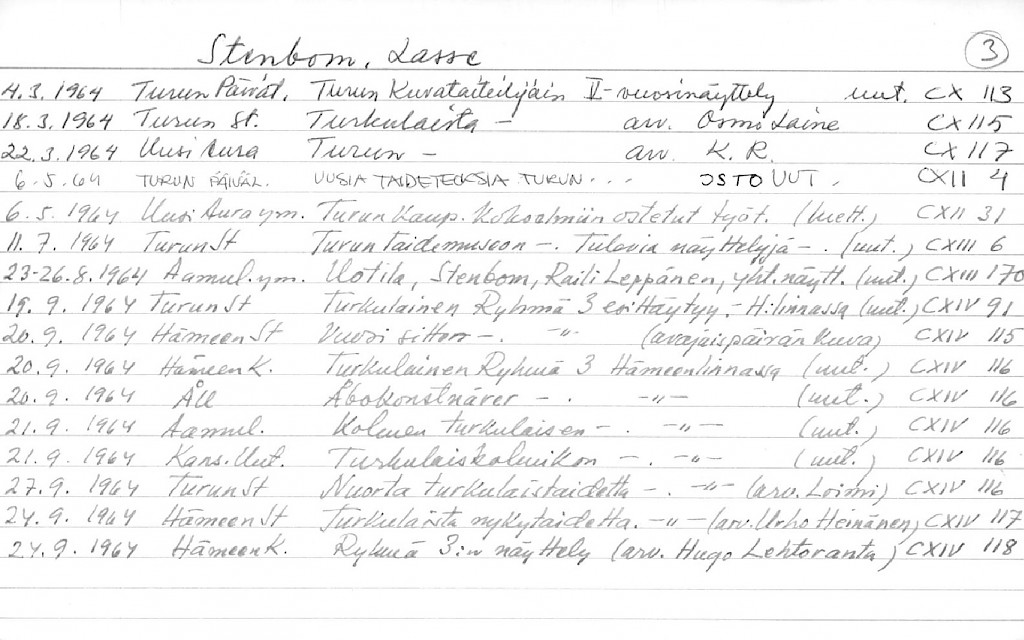 Stenbom, Lasse 3
4.3.1964 Turun Päivät. Turun Kuvataiteilijain V-vuosinäyttely uut. CX 113
18.3.1964 Turun St. Turkulaista - arv. Osmo Laine CX 115
22.3.1964 Uusi Aura Turun - arv. K.R. CX 117
6.5.64 TURUN PÄIVÄL. UUSIA TAIDETEOKSIA TURUN... OSTO UUT. CXII 4
6.5.1964 Uusi Aura ym. Turun Kaup. Kokoelmiin ostetut työt. (luett.) CXII 31
11.7.1964 Turun St Turun Taidemuseon -. Tulevia näyttelyjä -. (uut.) CXIII 6
23-26.8.1964 Aamul. ym. Uotila, Stenbom, Raili Leppänen, yht.näytt. (uut.) CXIII 170
19.9.1964 Turun St Turkulainen Ryhmä 3 esittäytyy,- H:linnassa (uut.) CXIV 91
20.9.1964 Hämeen St Vuosi sitten -. -"- (avajaispäivän kuva) CXIV 115
20.9.1964 Hämeen K. Turkulainen Ryhmä 3 Hämeenlinnassa (uut.) CXIV 116
20.9.1964 ÅU Åbokonstnärer -. -"- (uut.) CXIV 116
21.9.1964 Aamul. Kolmen turkulaisen -. -"- (uut.) CXIV 116
21.9.1964 Kans.Uut. Turkulaiskolmikon -. -"- (uut.) CXIV 116
27.9.1964 Turun St Nuorta turkulaistaidetta -. -"- (arv. Loimi) CXIV 116
24.9.1964 Hämeen St Turkulaista nykytaidetta. -"- (arv. Urho Heinänen) CXIV 117
24.9.1964 Hämeen K. Ryhmä 3:n näyttely (arv. Hugo Lehtoranta) CXIV 118